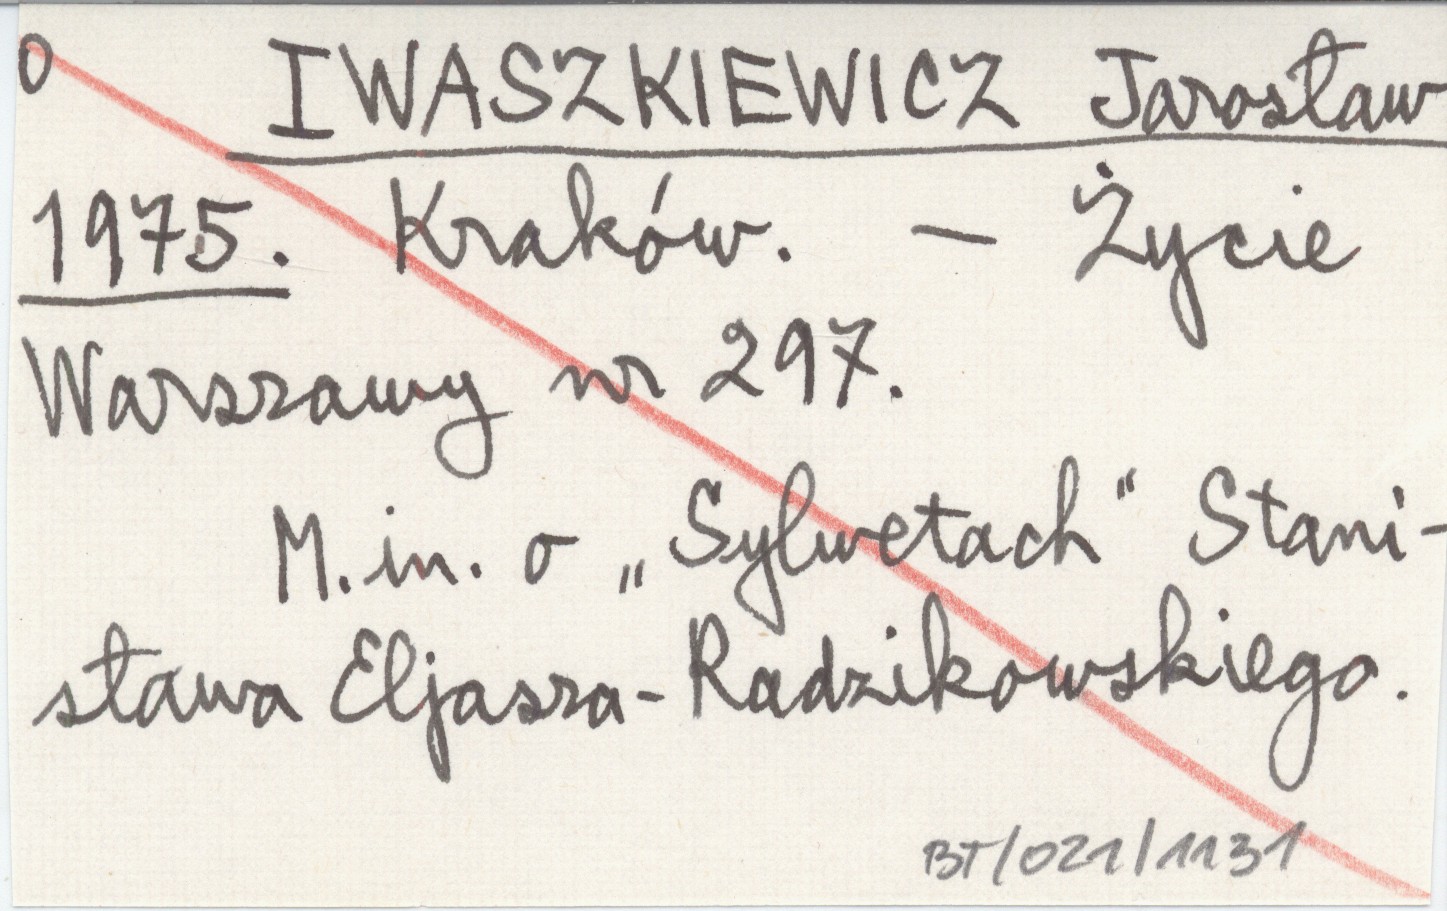 0 IWASZKIEWICZ Jarosław
1975. Kraków. – Życie
Warszawy nr 297.
M. in. o „Sylwetach" Stani-
sława Eljasza-Radzikowskiego.
BT/021/1131